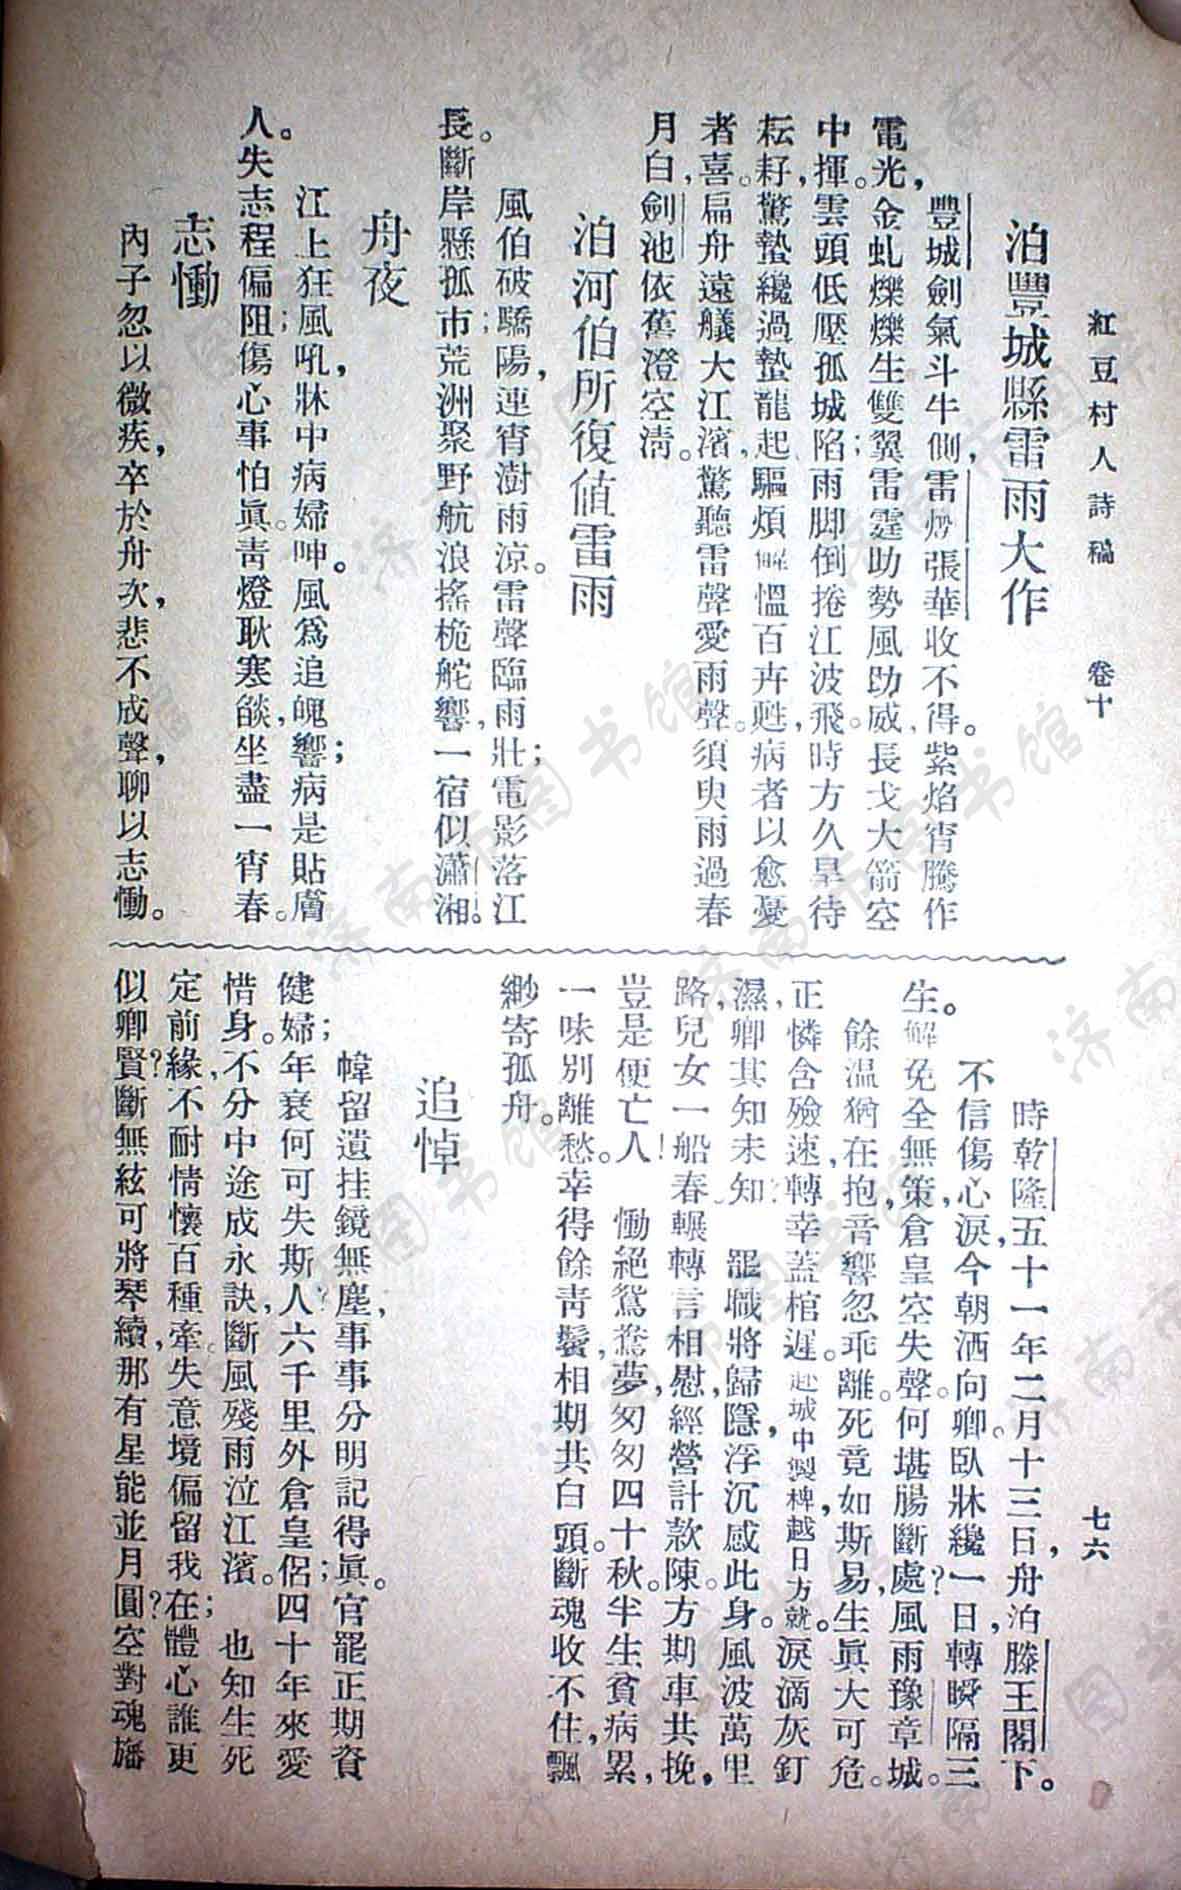 紅豆村人詩稿　卷十　七六
泊豐城縣雷雨大作
豐城劍氣斗牛側，雷煥張華收不得。紫焰宵騰作
電光，金虬爍爍生雙翼；雷霆助勢風助威，長戈大箭空
中揮。雲頭低壓孤城陷，雨脚倒捲江波飛。時方久旱待
耘耔，驚蟄纔過蟄龍起，驅煩解慍百卉甦，病者以愈憂
者喜。扁舟遠艤大江濱，驚聽雷聲愛雨聲。須臾雨過春
月白，劍池依舊澄空淸。
泊河伯所復值雷雨
風伯破驕陽，連宵澍雨涼。雷聲臨雨壯；電影落江
長。斷岸縣孤市；荒洲聚野航。浪搖桅舵響，一宿似瀟湘。
舟夜
江上狂風吼，牀中病婦呻。風爲追魄響；病是貼膚
人。失志程偏阻；傷心事怕眞。靑燈耿寒燄，坐盡一宵春。
志慟
內子忽以微疾，卒於舟次，悲不成聲，聊以志慟。
時乾隆五十一年二月十三日，舟泊滕王閣下。
不信傷心淚，今朝洒向卿。臥牀纔一日，轉瞬隔三
生。解免全無策，倉皇空失聲。何堪腸斷處？風雨豫章城。
餘溫猶在抱，音響忽乖離。死竟如斯易，生眞大可危。
正憐含殮速，轉幸蓋棺遲。赴城中製椑，越日方就。淚滴灰釘
濕，卿其知未知？　罷職將歸隱，浮沉感此身。風波萬里
路，兒女一船春。輾轉言相慰，經營計款陳。方期車共挽，
豈是便亡人！　慟絕鴛鴦夢，匆匆四十秋。半生貧病累，
一味別離愁。幸得餘靑鬢，相期共白頭。斷魂收不住，飄
緲寄孤舟。
追悼
幃留遺挂鏡無塵，事事分明記得眞。官罷正期資
健婦；年衰何可失斯人？六千里外倉皇侶；四十年來愛
惜身。不分中途成永訣，斷風殘雨泣江濱。　也知生死
定前緣，不耐情懷百種牽。失意境偏留我在；體心誰更
似卿賢？斷無絃可將琴續，那有星能並月圓？空對魂旛